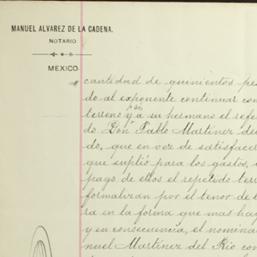 MANUEL ALVAREZ DE LA CADENA.
NOTARIO
MEXICO
cantidad de quinientos pe
do al exponente continuar con
por su
terreno y a su hermano el refe
do Don Pablo Martinez de
do, que en vez de satisfacer
que suplió para los gastos,
pago de ellos el repetido terr
formalizan por el tenor de
ra en la forma que mas hay
y en consecuencia, el nomina
nuel Martinez del Rio con